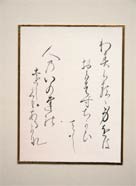 わすらるゝ身をは
おもはすちかひ
てし
人のいのちの
をしくもあるかな